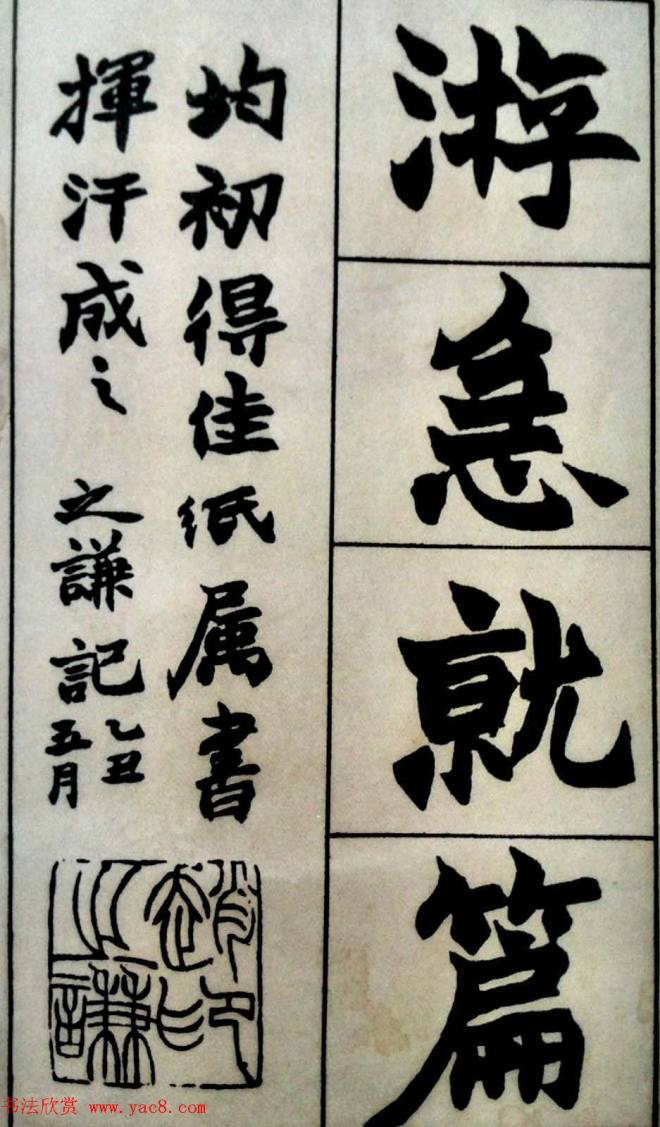 游急就篇
均初得佳纸属書
揮汗成之
之謙記
乙丑
五月
趙印之謙
书法欣赏 www.yac8.com